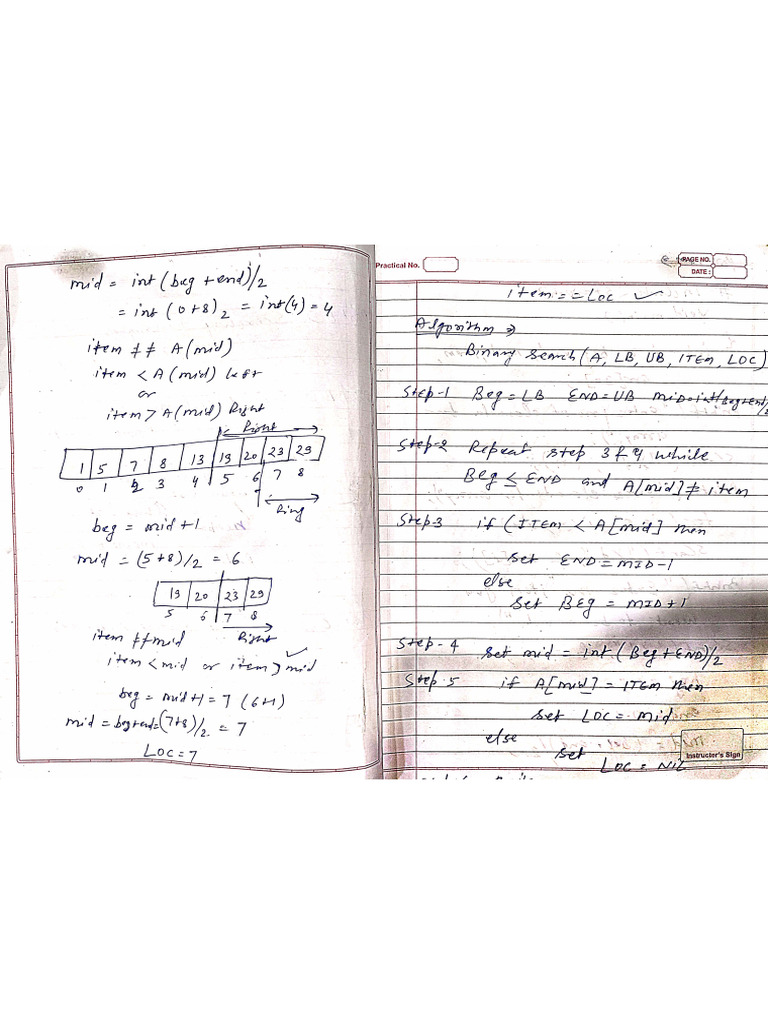 mid = int (beg + end)/2
= int (0+8)/2 = int(4) = 4
item ≠≠ A(mid)
item < A(mid) left
or
item > A(mid) Right
Right
1 5 7 8 13 19 20 23 29
0 1 2 3 4 5 6 7 8
Ring
beg = mid+1
mid = (5+8)/2 = 6
19 20 23 29
5 6 7 8
Right
item ≠≠ mid
item < mid or item > mid ✓
beg = mid+1 = 7 (6+1)
mid = beg+end = (7+8)/2 = 7
Loc = 7
Practical No.
PAGE NO.
DATE :
item == Loc ✓
Algorithm ⇒
Binary Search (A, LB, UB, ITEM, LOC)
Step-1 Beg = LB END = UB MID = int(Beg+End)/2
Step-2 Repeat step 3 & 4 while
Beg ≤ END and A[mid] ≠ item
Step-3 if (ITEM < A[mid] then
set END = MID-1
else
set BEG = MID+1
Step-4 set mid = int (Beg+END)/2
Step-5 if A[mid] = ITEM then
set LOC = mid
else
set LOC = NIL
Instructor's Sign